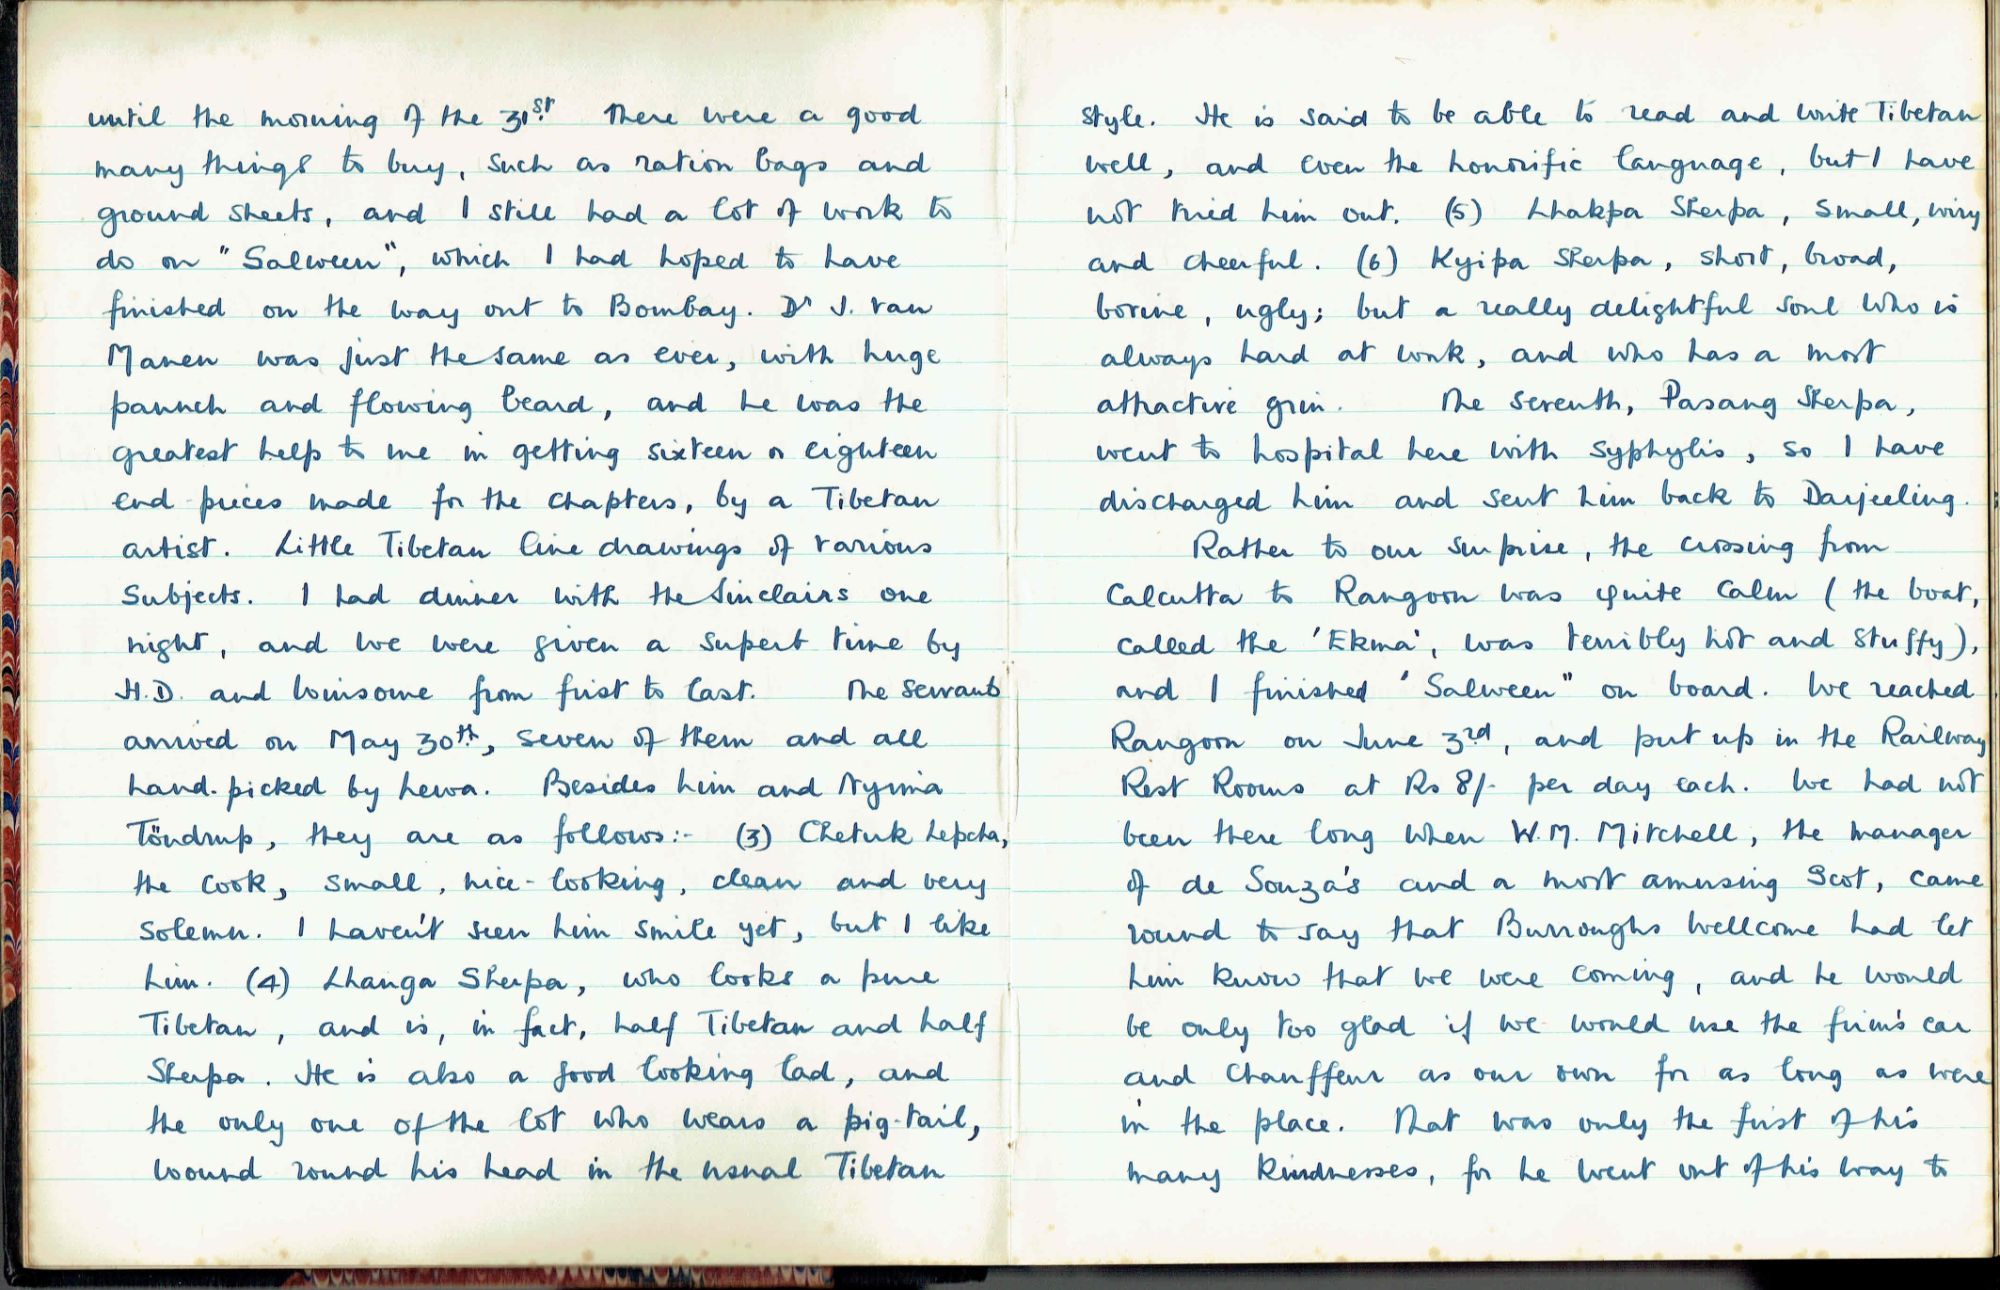 until the morning of the 31st. There were a good
many things to buy, such as ration bags and
ground sheets, and I still had a lot of work to
do on "Salween", which I had hoped to have
finished on the way out to Bombay. Dr J. van
Manen was just the same as ever, with huge
paunch and flowing beard, and he was the
greatest help to me in getting sixteen or eighteen
end-pieces made for the chapters, by a Tibetan
artist. Little Tibetan line drawings of various
subjects. I had dinner with the Sinclairs one
night, and we were given a superb time by
H.D. and Winsome from first to last. The servants
arrived on May 30th, seven of them and all
hand-picked by Lewa. Besides him and Nyima
Töndrup, they are as follows:- (3) Chetuk Lepcha,
the cook, small, nice-looking, clean and very
solemn. I haven't seen him smile yet, but I like
him. (4) Lhanga Sherpa, who looks a pure
Tibetan, and is, in fact, half Tibetan and half
Sherpa. He is also a good looking lad, and
the only one of the lot who wears a pig-tail,
wound round his head in the usual Tibetan
style. He is said to be able to read and write Tibetan
well, and even the honorific language, but I have
not tried him out. (5) Lhakpa Sherpa, small, wiry
and cheerful. (6) Kyipa Sherpa, short, broad,
bovine, ugly; but a really delightful soul who is
always hard at work, and who has a most
attractive grin. The seventh, Pasang Sherpa,
went to hospital here with syphylis, so I have
discharged him and sent him back to Darjeeling.
Rather to our surprise, the crossing from
Calcutta to Rangoon was quite calm (the boat,
called the 'Ekma', was terribly hot and stuffy),
and I finished 'Salween" on board. We reached
Rangoon on June 3rd, and put up in the Railway
Rest Rooms at Rs 8/- per day each. We had not
been there long when W.M. Mitchell, the manager
of de Souza's and a most amusing Scot, came
round to say that Burroughs Wellcome had let
him know that we were coming, and he would
be only too glad if we would use the firm's car
and chauffeur as our own for as long as were
in the place. That was only the first of his
many kindnesses, for he went out of his way to